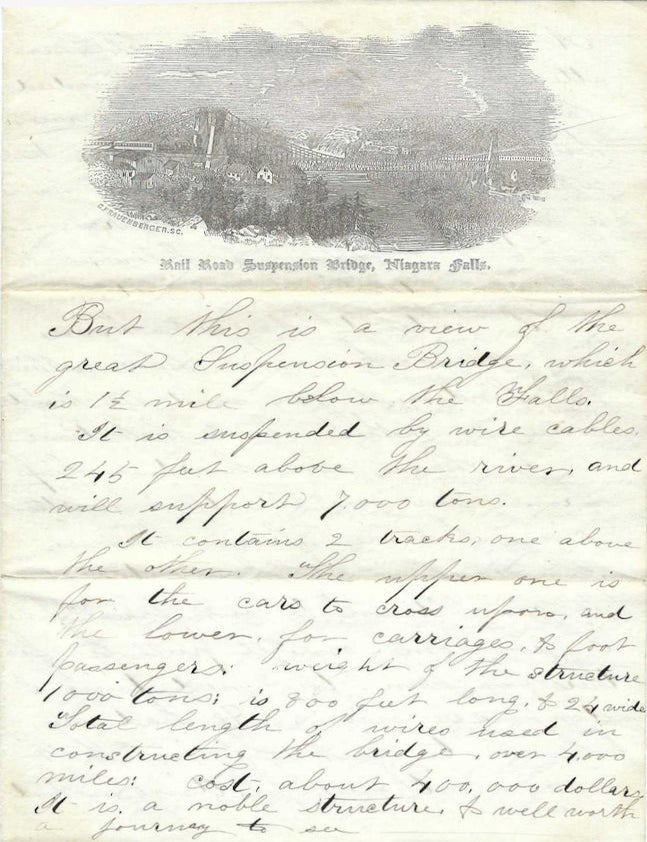 C. FRAUENBERGER. SC.
Rail Road Suspension Bridge, Niagara Falls.
But this is a view of the
great Suspension Bridge, which
is 1½ mile below the Falls.
It is suspended by wire cables.
245 feet above the river, and
will support 7,000 tons.
It contains 2 tracks, one above
the other. The upper one is
for the cars to cross upon, and
the lower, for carriages, & foot
passengers: weight of the structure
1000 tons; is 800 feet long, & 24 wide
Total length of wires used in
constructing the bridge, over 4,000
miles: Cost, about 400,000 dollars
It is a noble structure, & well worth
a journey to see